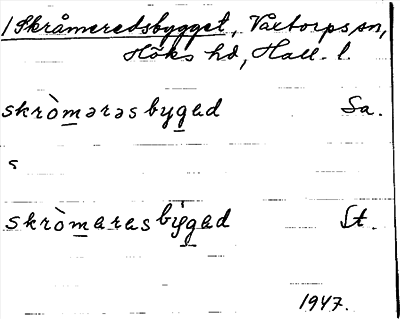 / Skråmeredsbygget, Våxtorps sn,
Höks hd, Hall. l.
skròmərəs bygəd Sa.
s
skròmaras býgad St.
1947.